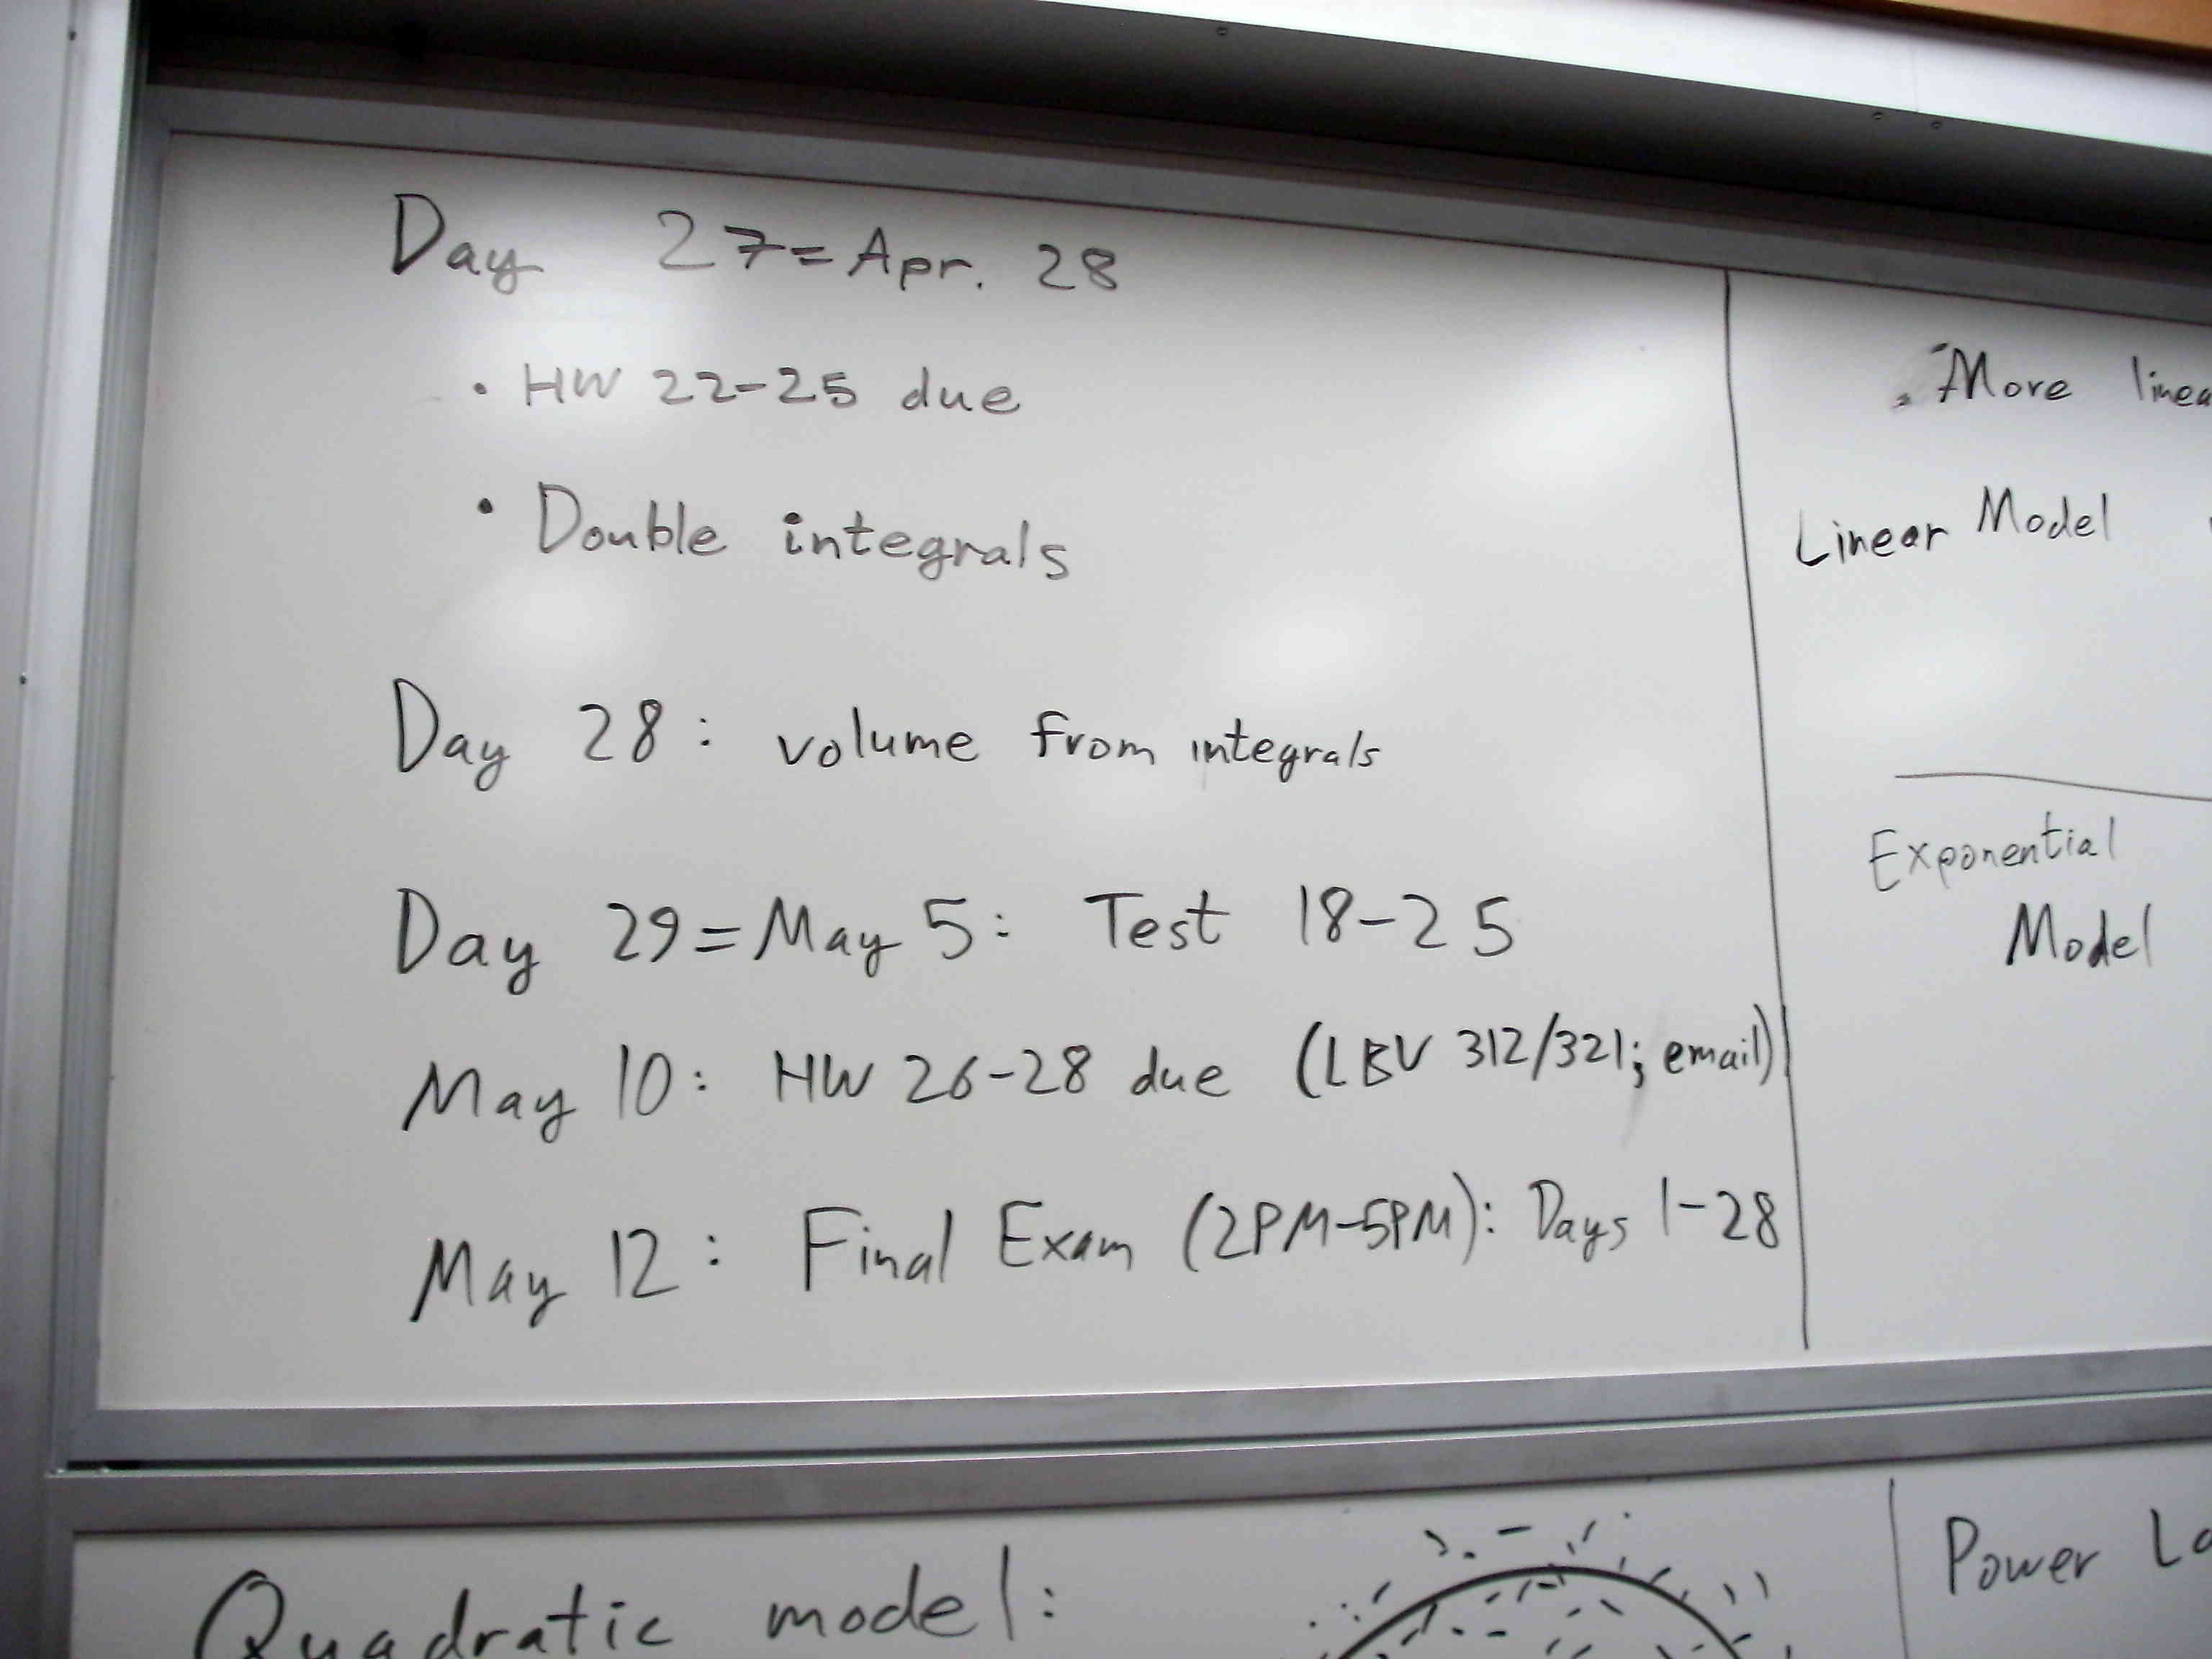 Day 27 = Apr. 28
• HW 22-25 due
• Double integrals
Day 28: volume from integrals
Day 29 = May 5: Test 18-25
May 10: HW 26-28 due (LBV 312/321; email)
May 12: Final Exam (2PM-5PM): Days 1-28
• More
Linear Model
Exponential
Model
Quadratic model:
Power